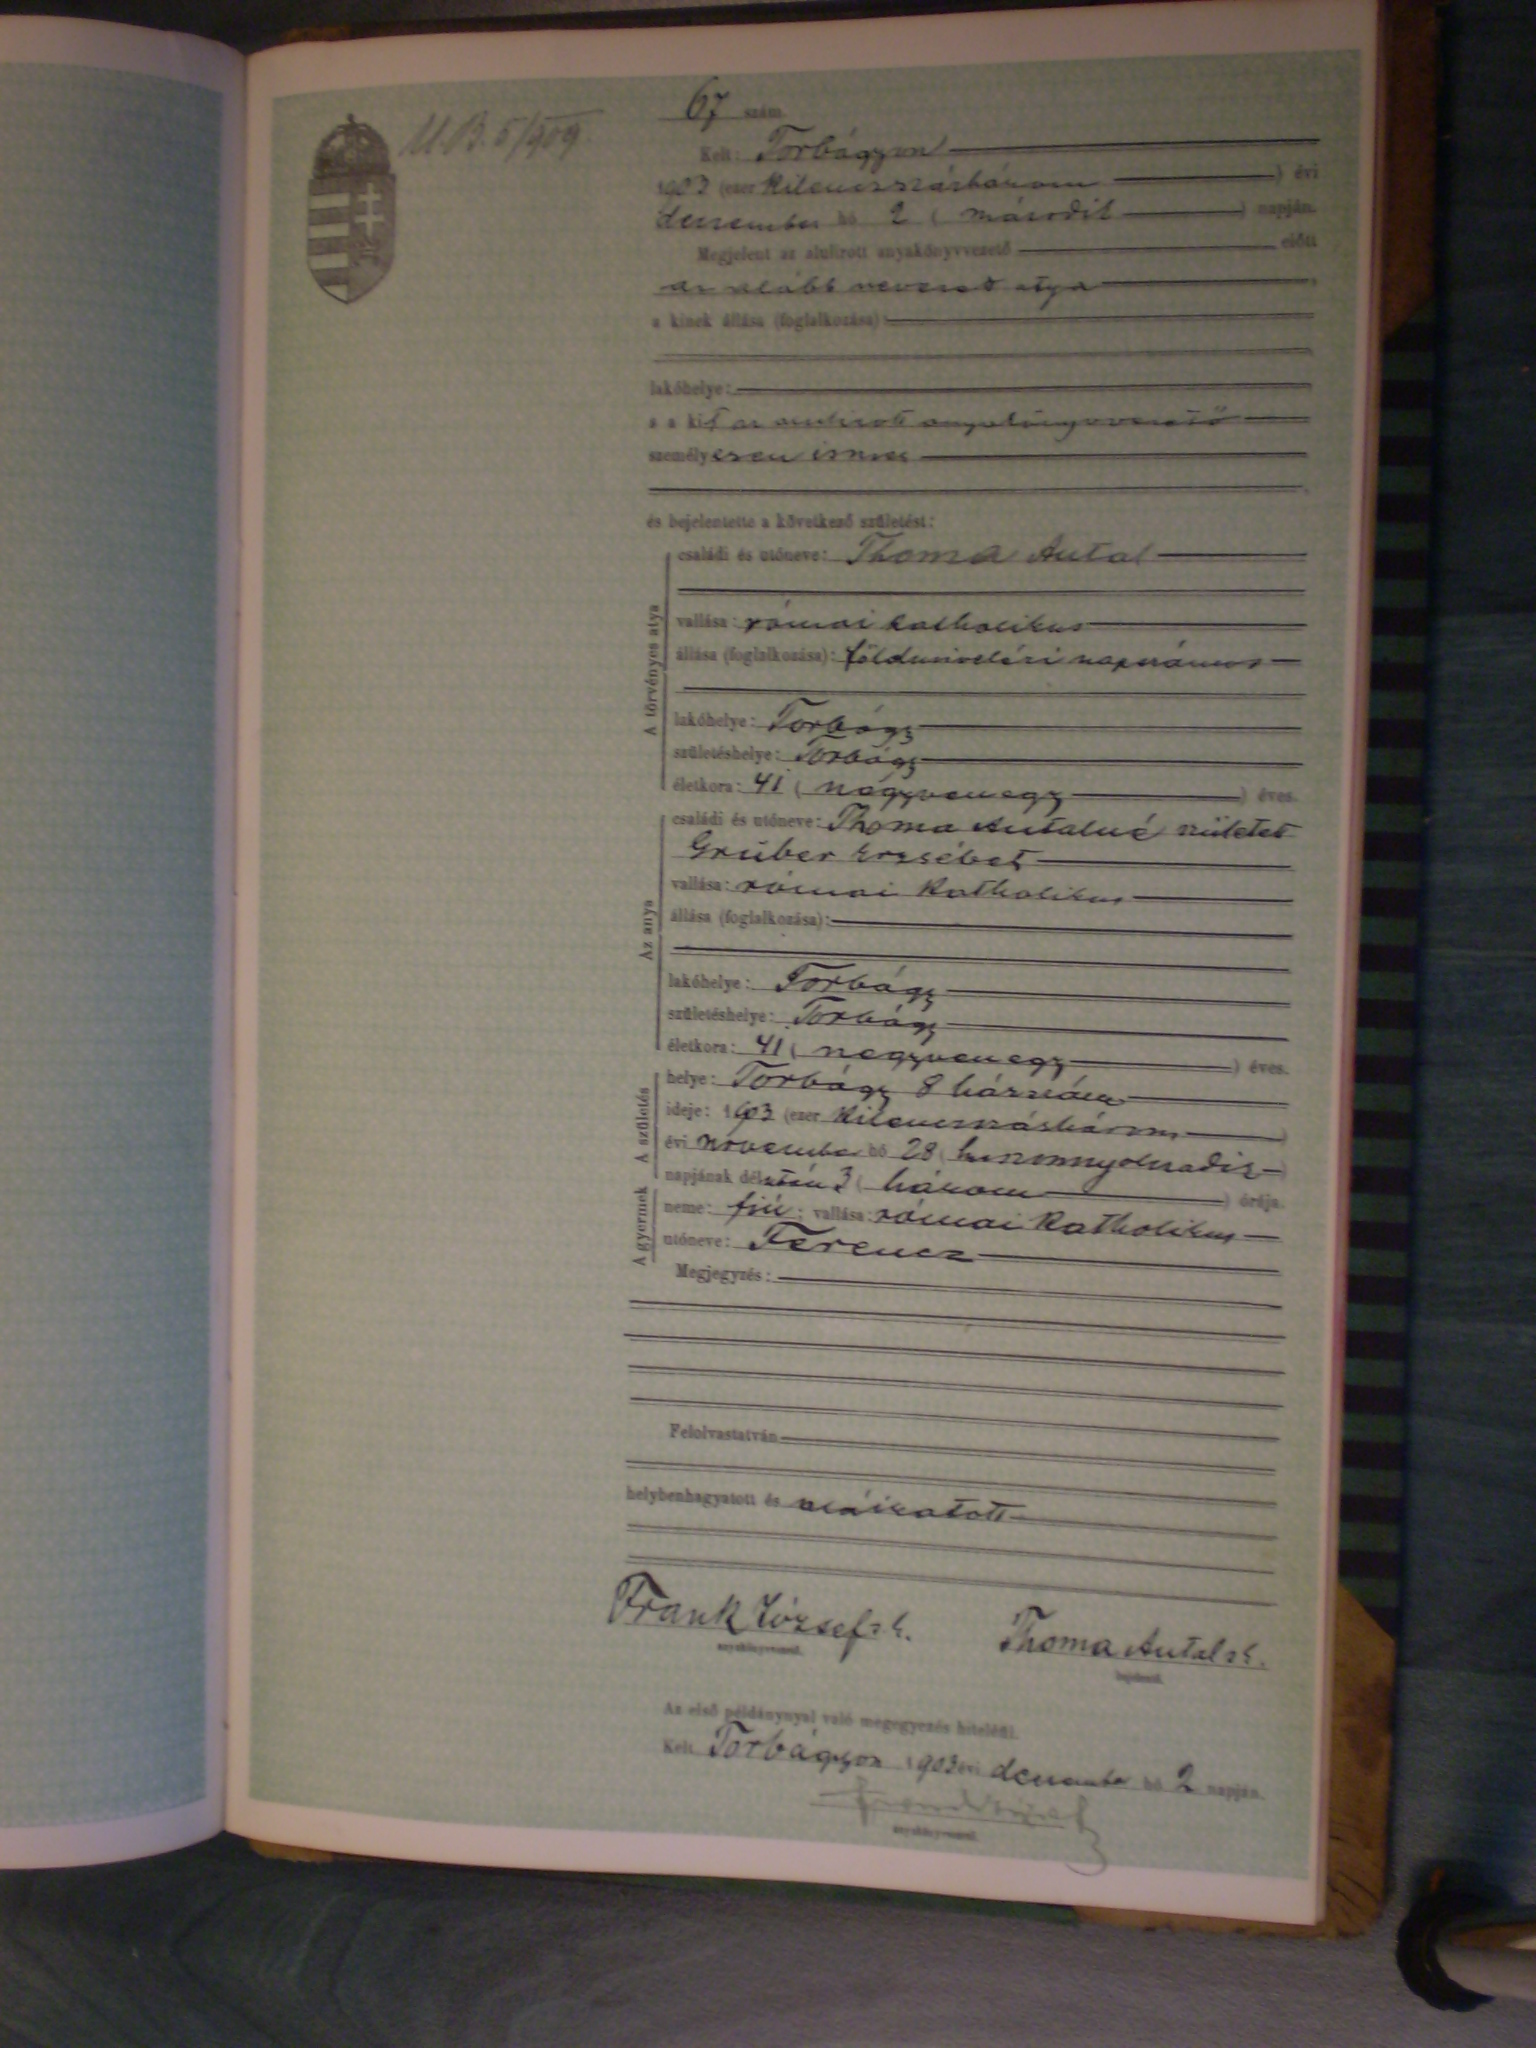 U.B. 5/909.
67 szám
Kelt: Torbágyon
1903 (ezer kilencszázhárom) évi
december hó 2 (második) napján.
Megjelent az alulirott anyakönyvvezető előtt
az alább nevezett atya
a kinek állása (foglalkozása):
lakóhelye:
s a kit az alulirott anyakönyvvezető
személyesen ismer
és bejelentette a következő születést:
A törvényes atya
családi és utóneve: Thoma Antal
vallása: római katholikus
állása (foglalkozása): földmivelési napszámos
lakóhelye: Torbágy
születéshelye: Torbágy
életkora: 41 (negyvenegy) éves.
Az anya
családi és utóneve: Thoma Antalné született
Gruber Erzsébet
vallása: római katholikus
állása (foglalkozása):
lakóhelye: Torbágy
születéshelye: Torbágy
életkora: 41 (negyvenegy) éves.
A születés
helye: Torbágy 8 házszám
ideje: 1903 (ezer kilencszázhárom)
évi november hó 28 (huszonnyolcadik)
napjának délután 3 (három) órája.
A gyermek
neme: fiú; vallása: római katholikus
utóneve: Ferencz
Megjegyzés:
Felolvastatván
helybenhagyatott és aláiratott
Frank József s k. Thoma Antal s k.
anyakönyvvezető. bejelentő.
Az első példánynyal való megegyezés hiteléül.
Kelt Torbágyon 1903 évi december hó 2 napján.
anyakönyvvezető.